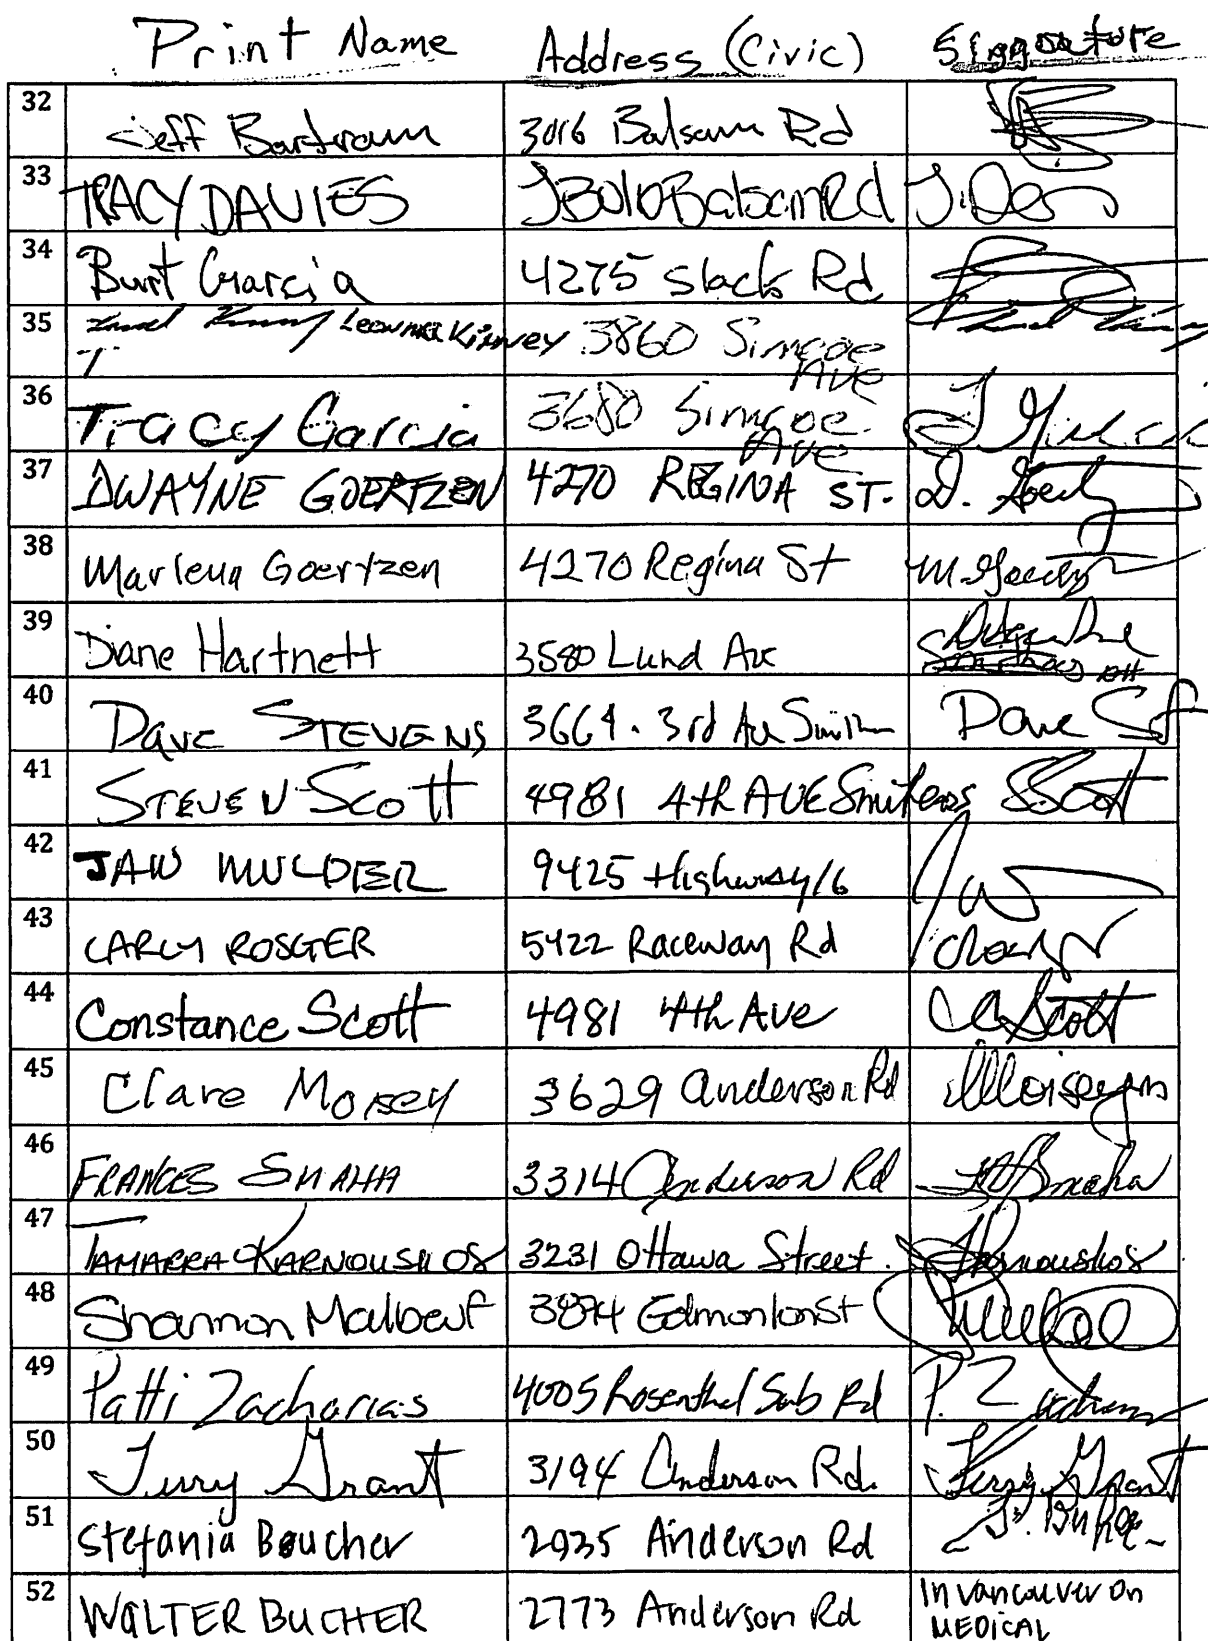 Print Name Address (Civic) Signature
32 Jeff Bartram 3016 Balsam Rd
33 TRACY DAVIES 3016 Balsam Rd
34 Burt Garcia 4275 Slack Rd
35 Kinney 3860 Simcoe
Ave
36 Tracy Garcia 3680 Simcoe
Ave
37 DWAYNE GOERTZEN 4270 REGINA ST. D.
38 Marlena Goertzen 4270 Regina St
39 Diane Hartnett 3580 Lund Ave
40 Dave STEVENS 3664 . 3rd Ave Dave
41 STEVEN SCOTT 4981 4th AVE Smithers S Scott
42 JAN MULDER 9425 Highway 16
43 CARLY ROSGER 5422 Raceway Rd
44 Constance Scott 4981 4th Ave C Scott
45 Clare Moisey 3629 Anderson Rd
46 FRANCES SMAHA 3314 Anderson Rd Smaha
47 TAMARRA KARNOUSHOS 3231 Ottawa Street. Karnoushos
48 Shannon Malbeuf 3874 Edmonton St
49 Patti Zacharias 4005 Rosenthal Sub Rd P. Zacharias
50 Terry Grant 3194 Anderson Rd. Terry Grant
51 Stefania Boucher 2935 Anderson Rd
52 WALTER BUCHER 2773 Anderson Rd In Vancouver On
MEDICAL